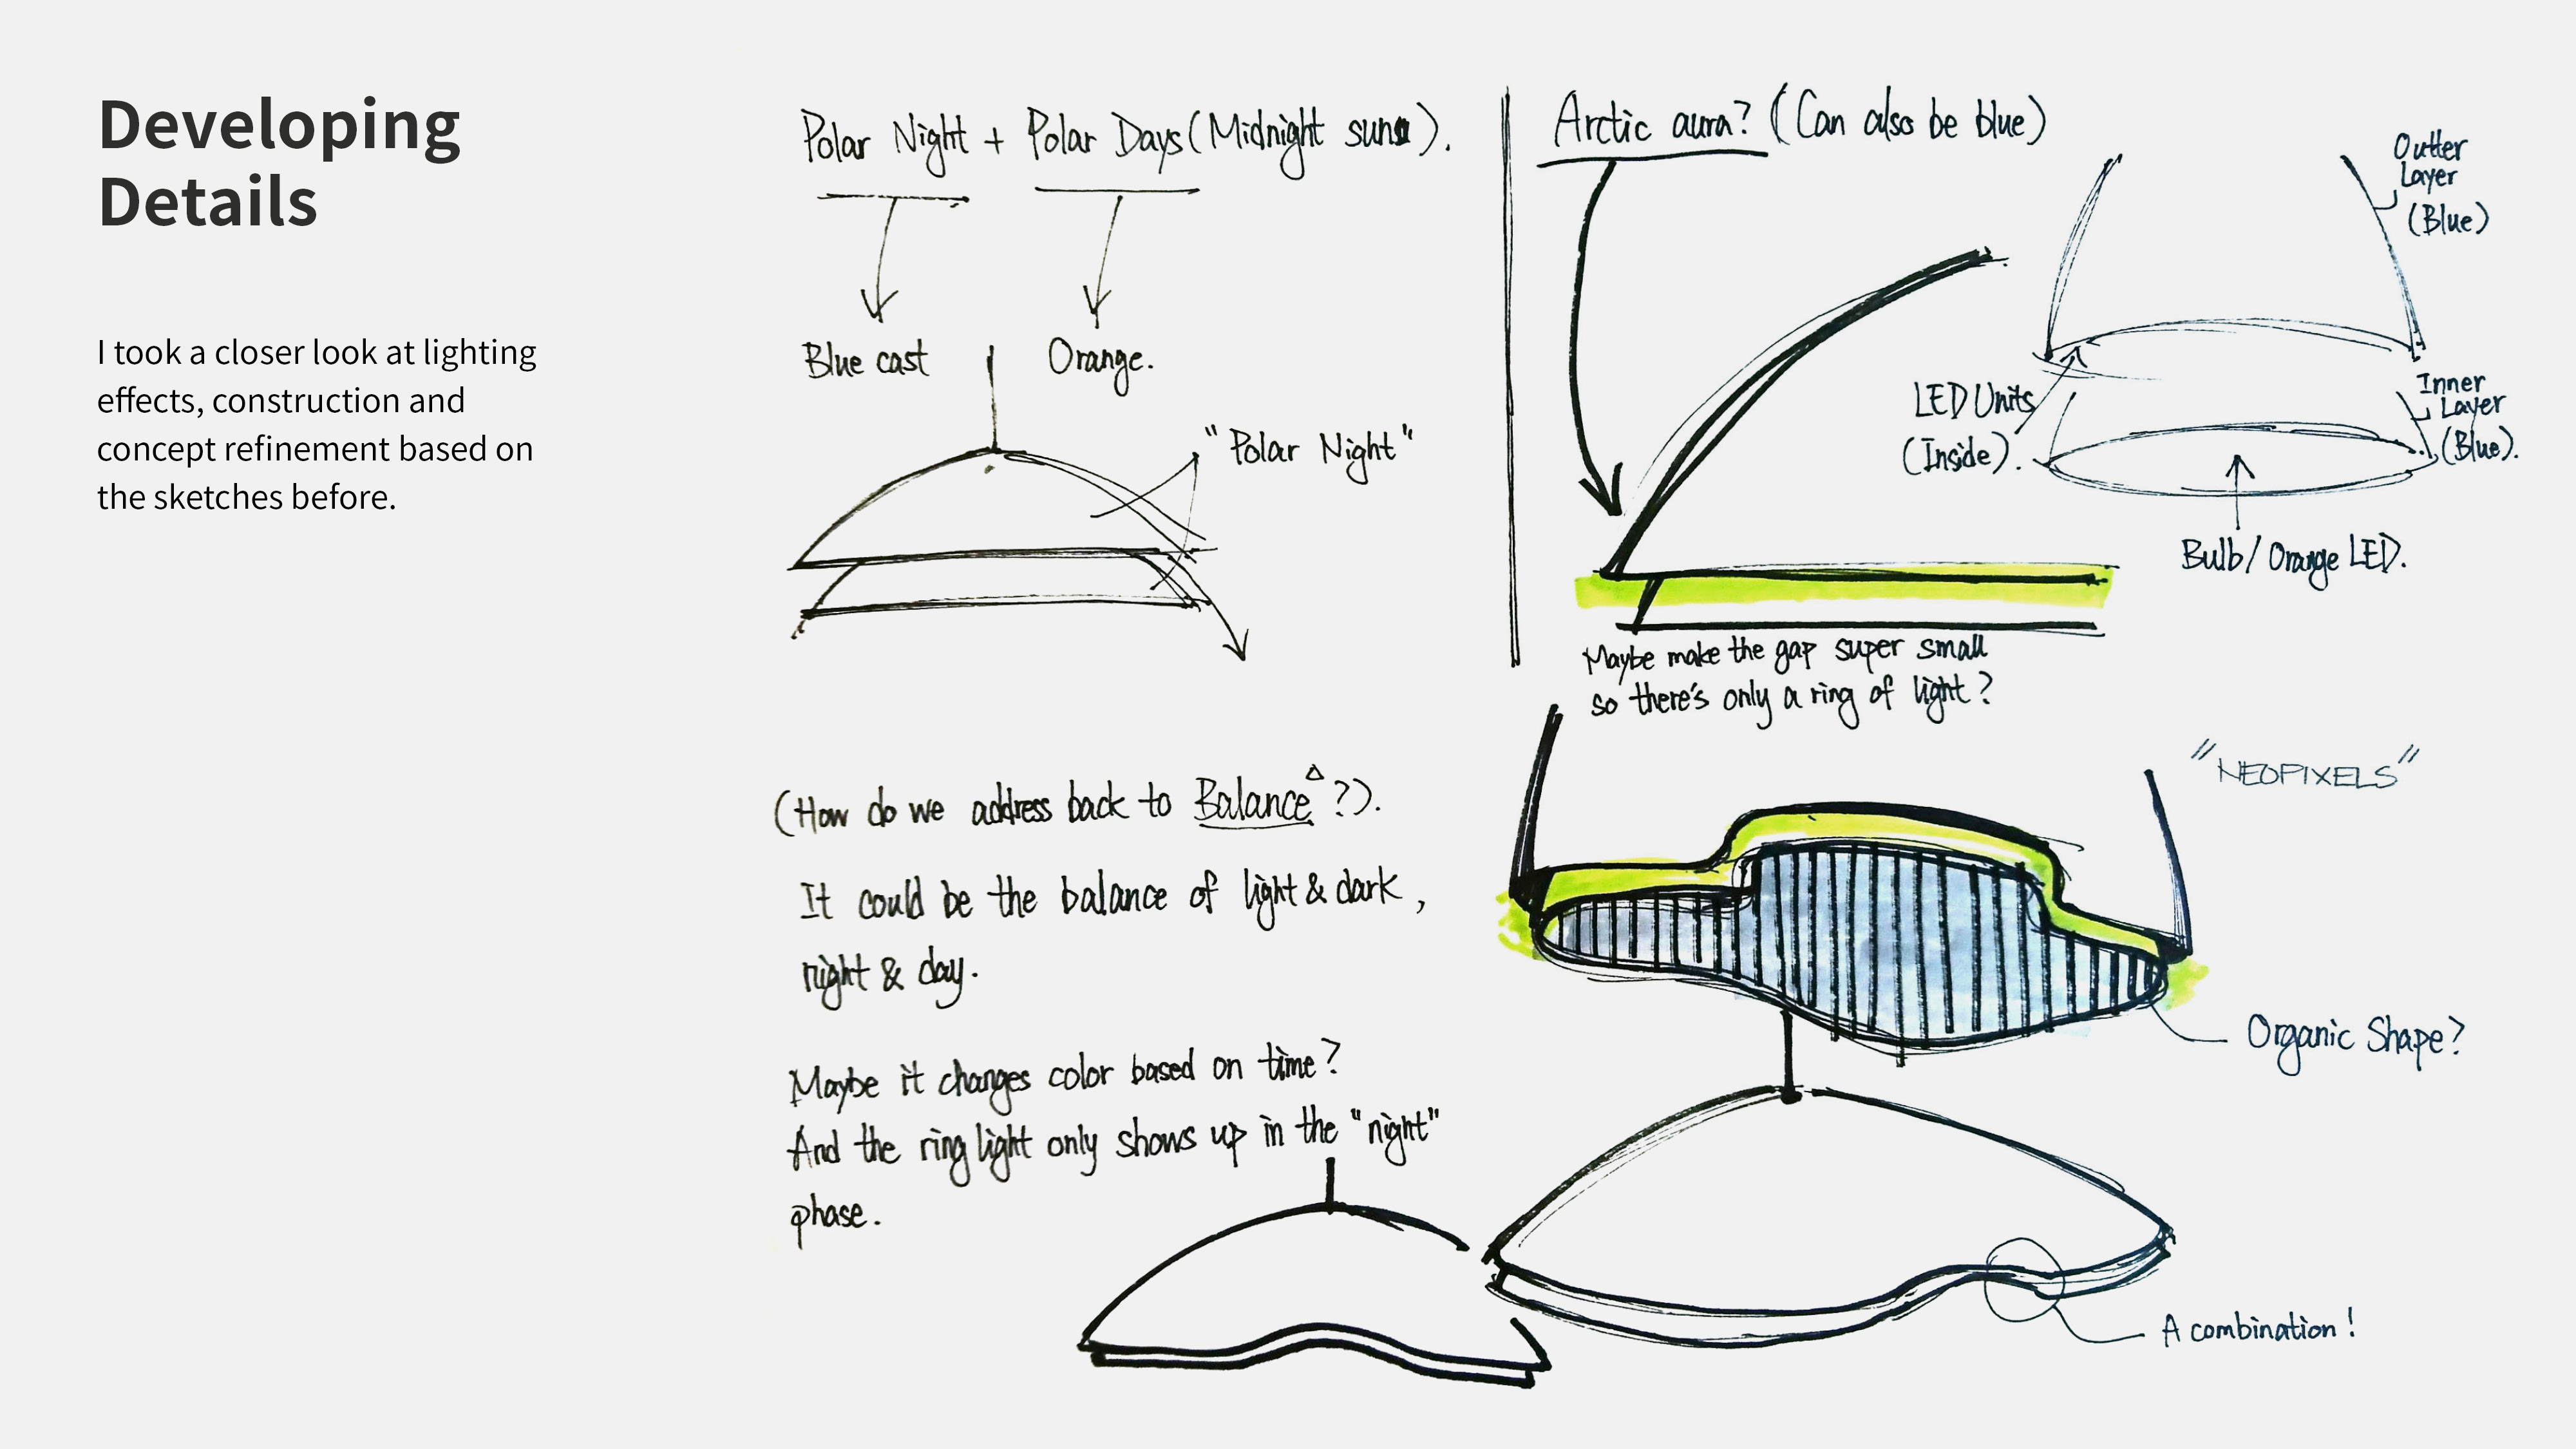 Developing
Details
I took a closer look at lighting
effects, construction and
concept refinement based on
the sketches before.
Polar Night + Polar Days (Midnight suns).
Blue cast
Orange.
"Polar Night"
(How do we address back to Balance?).
It could be the balance of light & dark,
night & day.
Maybe it changes color based on time?
And the ring light only shows up in the "night"
phase.
Arctic aura? (Can also be blue)
Outter
Layer
(Blue)
LED Units
(Inside).
Inner
Layer
(Blue).
Bulb/Orange LED.
Maybe make the gap super small
so there's only a ring of light?
"NEOPIXELS"
Organic Shape?
A combination!